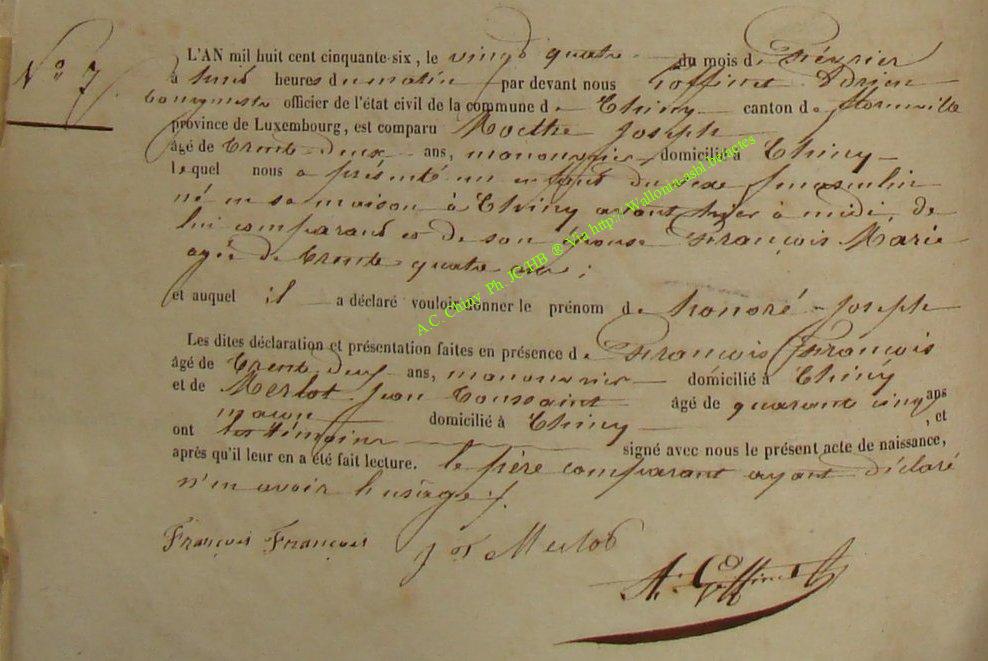 N° 7
L'AN mil huit cent cinquante-six, le vingt quatre du mois de février
à huit heures du matin par devant nous Goffinet Adrien
Bourgmestre officier de l'état civil de la commune de Chiny canton de florenville
province de Luxembourg, est comparu Moethe Joseph
âgé de trente-deux ans, manouvrier domicilié à Chiny
lequel nous a présenté un enfant du sexe masculin
né en sa maison à Chiny avant hier à midi, de
lui comparant et de son épouse François Marie
agée de trente quatre ans ;
et auquel il a déclaré vouloir donner le prénom de honoré-Joseph
Les dites déclaration et présentation faites en présence de François François
âgé de trente deux ans, manouvrier domicilié à Chiny
et de Merlot Jean Toussaint âgé de quarante cinq ans
maçon domicilié à Chiny, et
ont les témoins signé avec nous le présent acte de naissance,
après qu'il leur en a été fait lecture. le père comparant ayant déclaré
n'en avoir l'usage ./.
François François J T Merlot
A. Goffinet
A.C. Chiny Ph. JC HB @ Via http://Wallonia-asbl.be/actes